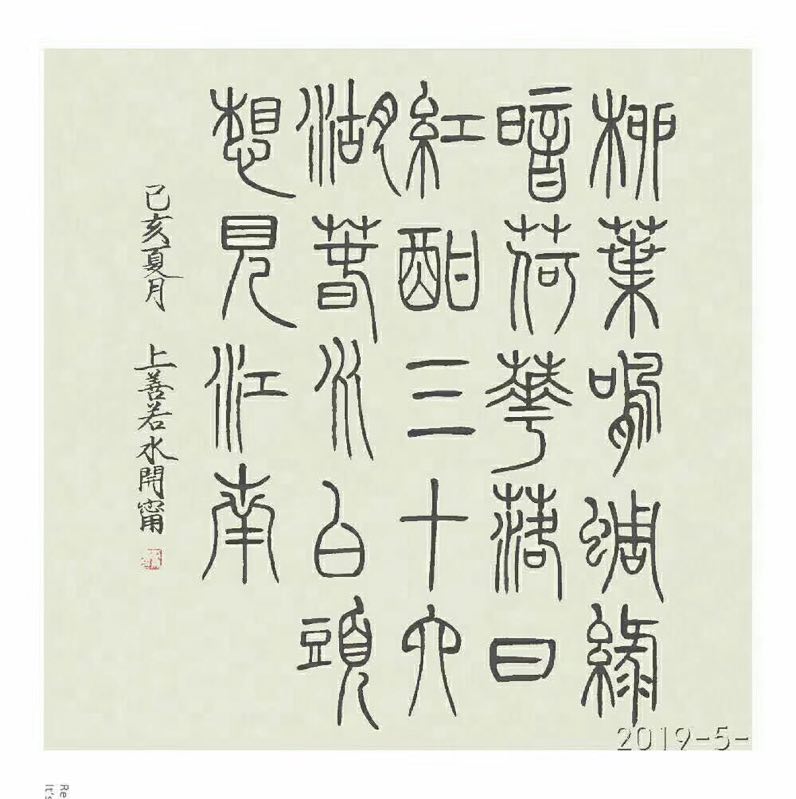 柳葉鳴蜩綠
暗荷華落日
紅酣三十六
湖春水白頭
想見江南
己亥夏月 上善若水開甯
2019-5-